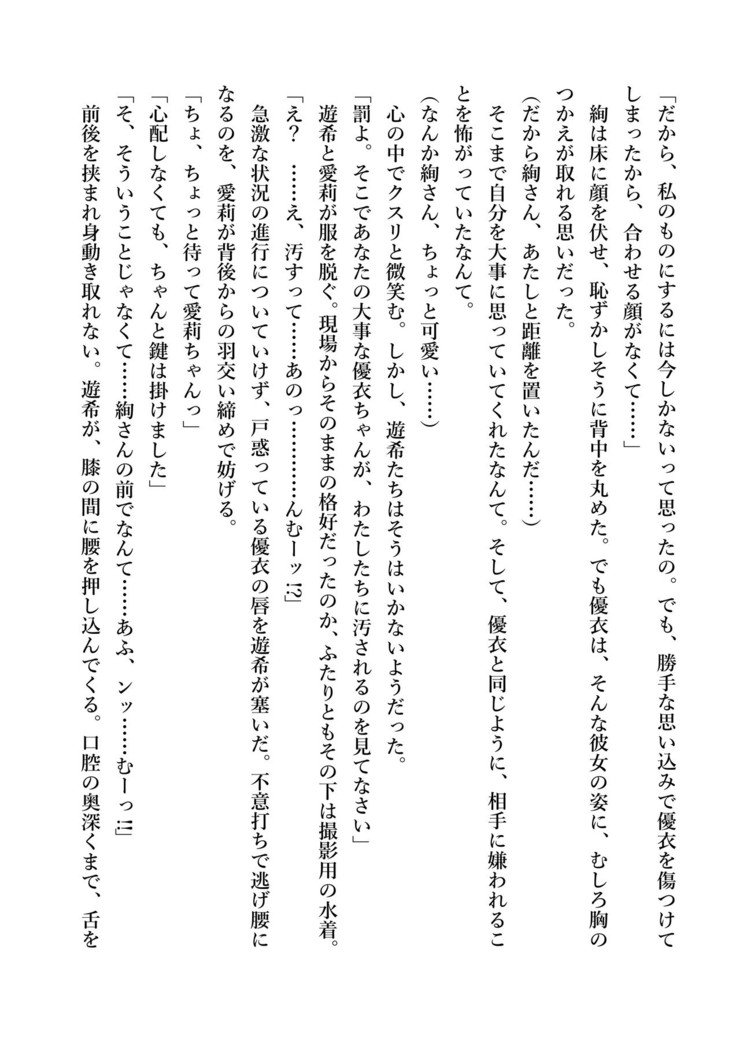 「だから、私のものにするには今しかないって思ったの。でも、勝手な思い込みで優衣を傷つけて
しまったから、合わせる顔がなくて……」
　絢は床に顔を伏せ、恥ずかしそうに背中を丸めた。でも優衣は、そんな彼女の姿に、むしろ胸の
つかえが取れる思いだった。
（だから絢さん、あたしと距離を置いたんだ……）
　そこまで自分を大事に思っていてくれたなんて。そして、優衣と同じように、相手に嫌われるこ
とを怖がっていたなんて。
（なんか絢さん、ちょっと可愛い……）
　心の中でクスリと微笑む。しかし、遊希たちはそうはいかないようだった。
「罰よ。そこであなたの大事な優衣ちゃんが、わたしたちに汚されるのを見てなさい」
　遊希と愛莉が服を脱ぐ。現場からそのままの格好だったのか、ふたりともその下は撮影用の水着。
「え？　……え、汚すって……あのっ…………んむーッ!?」
　急激な状況の進行についていけず、戸惑っている優衣の唇を遊希が塞いだ。不意打ちで逃げ腰に
なるのを、愛莉が背後からの羽交い締めで妨げる。
「ちょ、ちょっと待って愛莉ちゃんっ」
「心配しなくても、ちゃんと鍵は掛けました」
「そ、そういうことじゃなくて……絢さんの前でなんて……あふ、ンッ……むーっ!!」
　前後を挟まれ身動き取れない。遊希が、膝の間に腰を押し込んでくる。口腔の奥深くまで、舌を